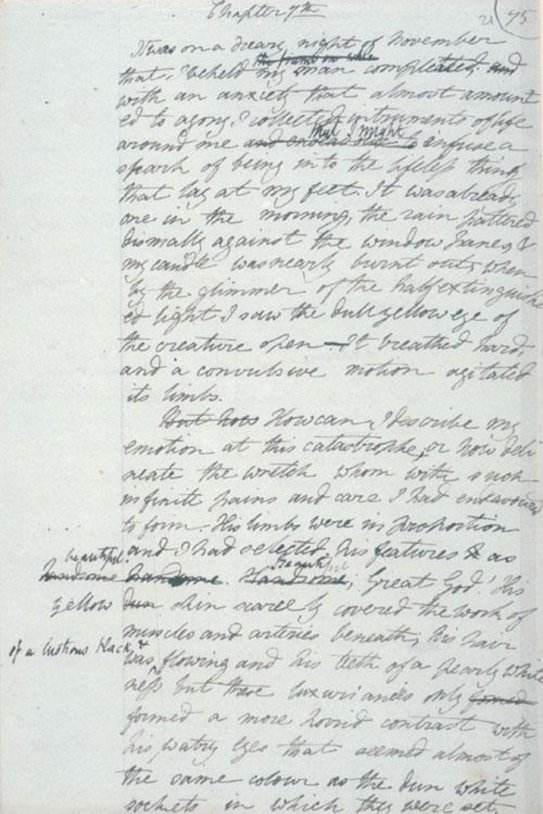 Chapter 7th
75
It was on a dreary night of November
that I beheld my man completed and
with an anxiety that almost amount
ed to agony I collected instruments of life
around me and endeavour to that I might infuse a
spark of being into the lifeless thing
that lay at my feet. It was already
one in the morning, the rain pattered
dismally against the window panes, &
my candle was nearly burnt out, when
by the glimmer of the half extinguish
ed light I saw the dull yellow eye of
the creature open — It breathed hard,
and a convulsive motion agitated
its limbs.
But how How can I describe my
emotion at this catastrophe, or how deli
neate the wretch whom with such
infinite pains and care I had endeavoured
to form. His limbs were in proportion
and I had selected his features & as
beautiful
handsome handsome. Handsome, beautiful Great God! His
yellow dun skin scarcely covered the work of
muscles and arteries beneath; his hair
of a lustrous black, &
was flowing and his teeth of a pearly white
ness but these luxuriances only formed
formed a more horrid contrast with
his watry eyes that seemed almost of
the same colour as the dun white
sockets in which they were set,